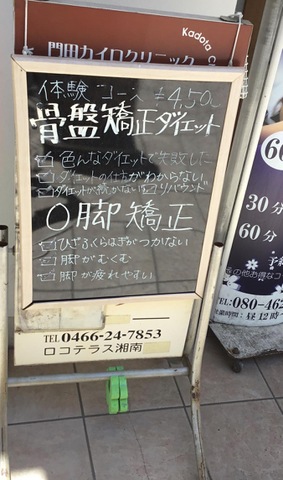 Kadota
門田カイロクリニック
体験 コース ¥4,50
骨盤矯正ダイエット
色んなダイエットで失敗した
ダイエットの仕方がわからない
ダイエットが続かない リバウンド
O脚矯正
ひざ、くらはぎがつかない
脚がむくむ
脚が疲れやすい
TEL 0466-24-7853
ロコテラス湘南
60
30分
60分
予約
の他お得なコ
TEL:080-462
営業時間:昼12時